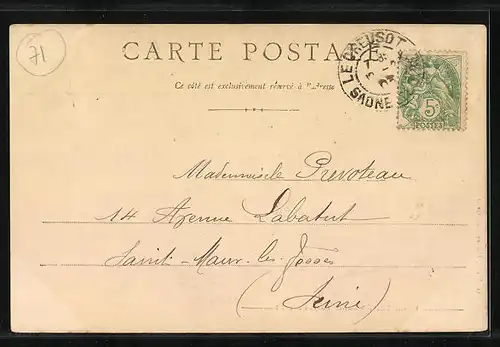 71
CARTE POSTA
Ce côté est exclusivement réservé à l'adresse
LE CREUSOT
SAONE
5c
POSTES
Mademoiselle Prevoteau
14 Avenue Labatut
Saint-Maur-les-Fossés
(Seine)